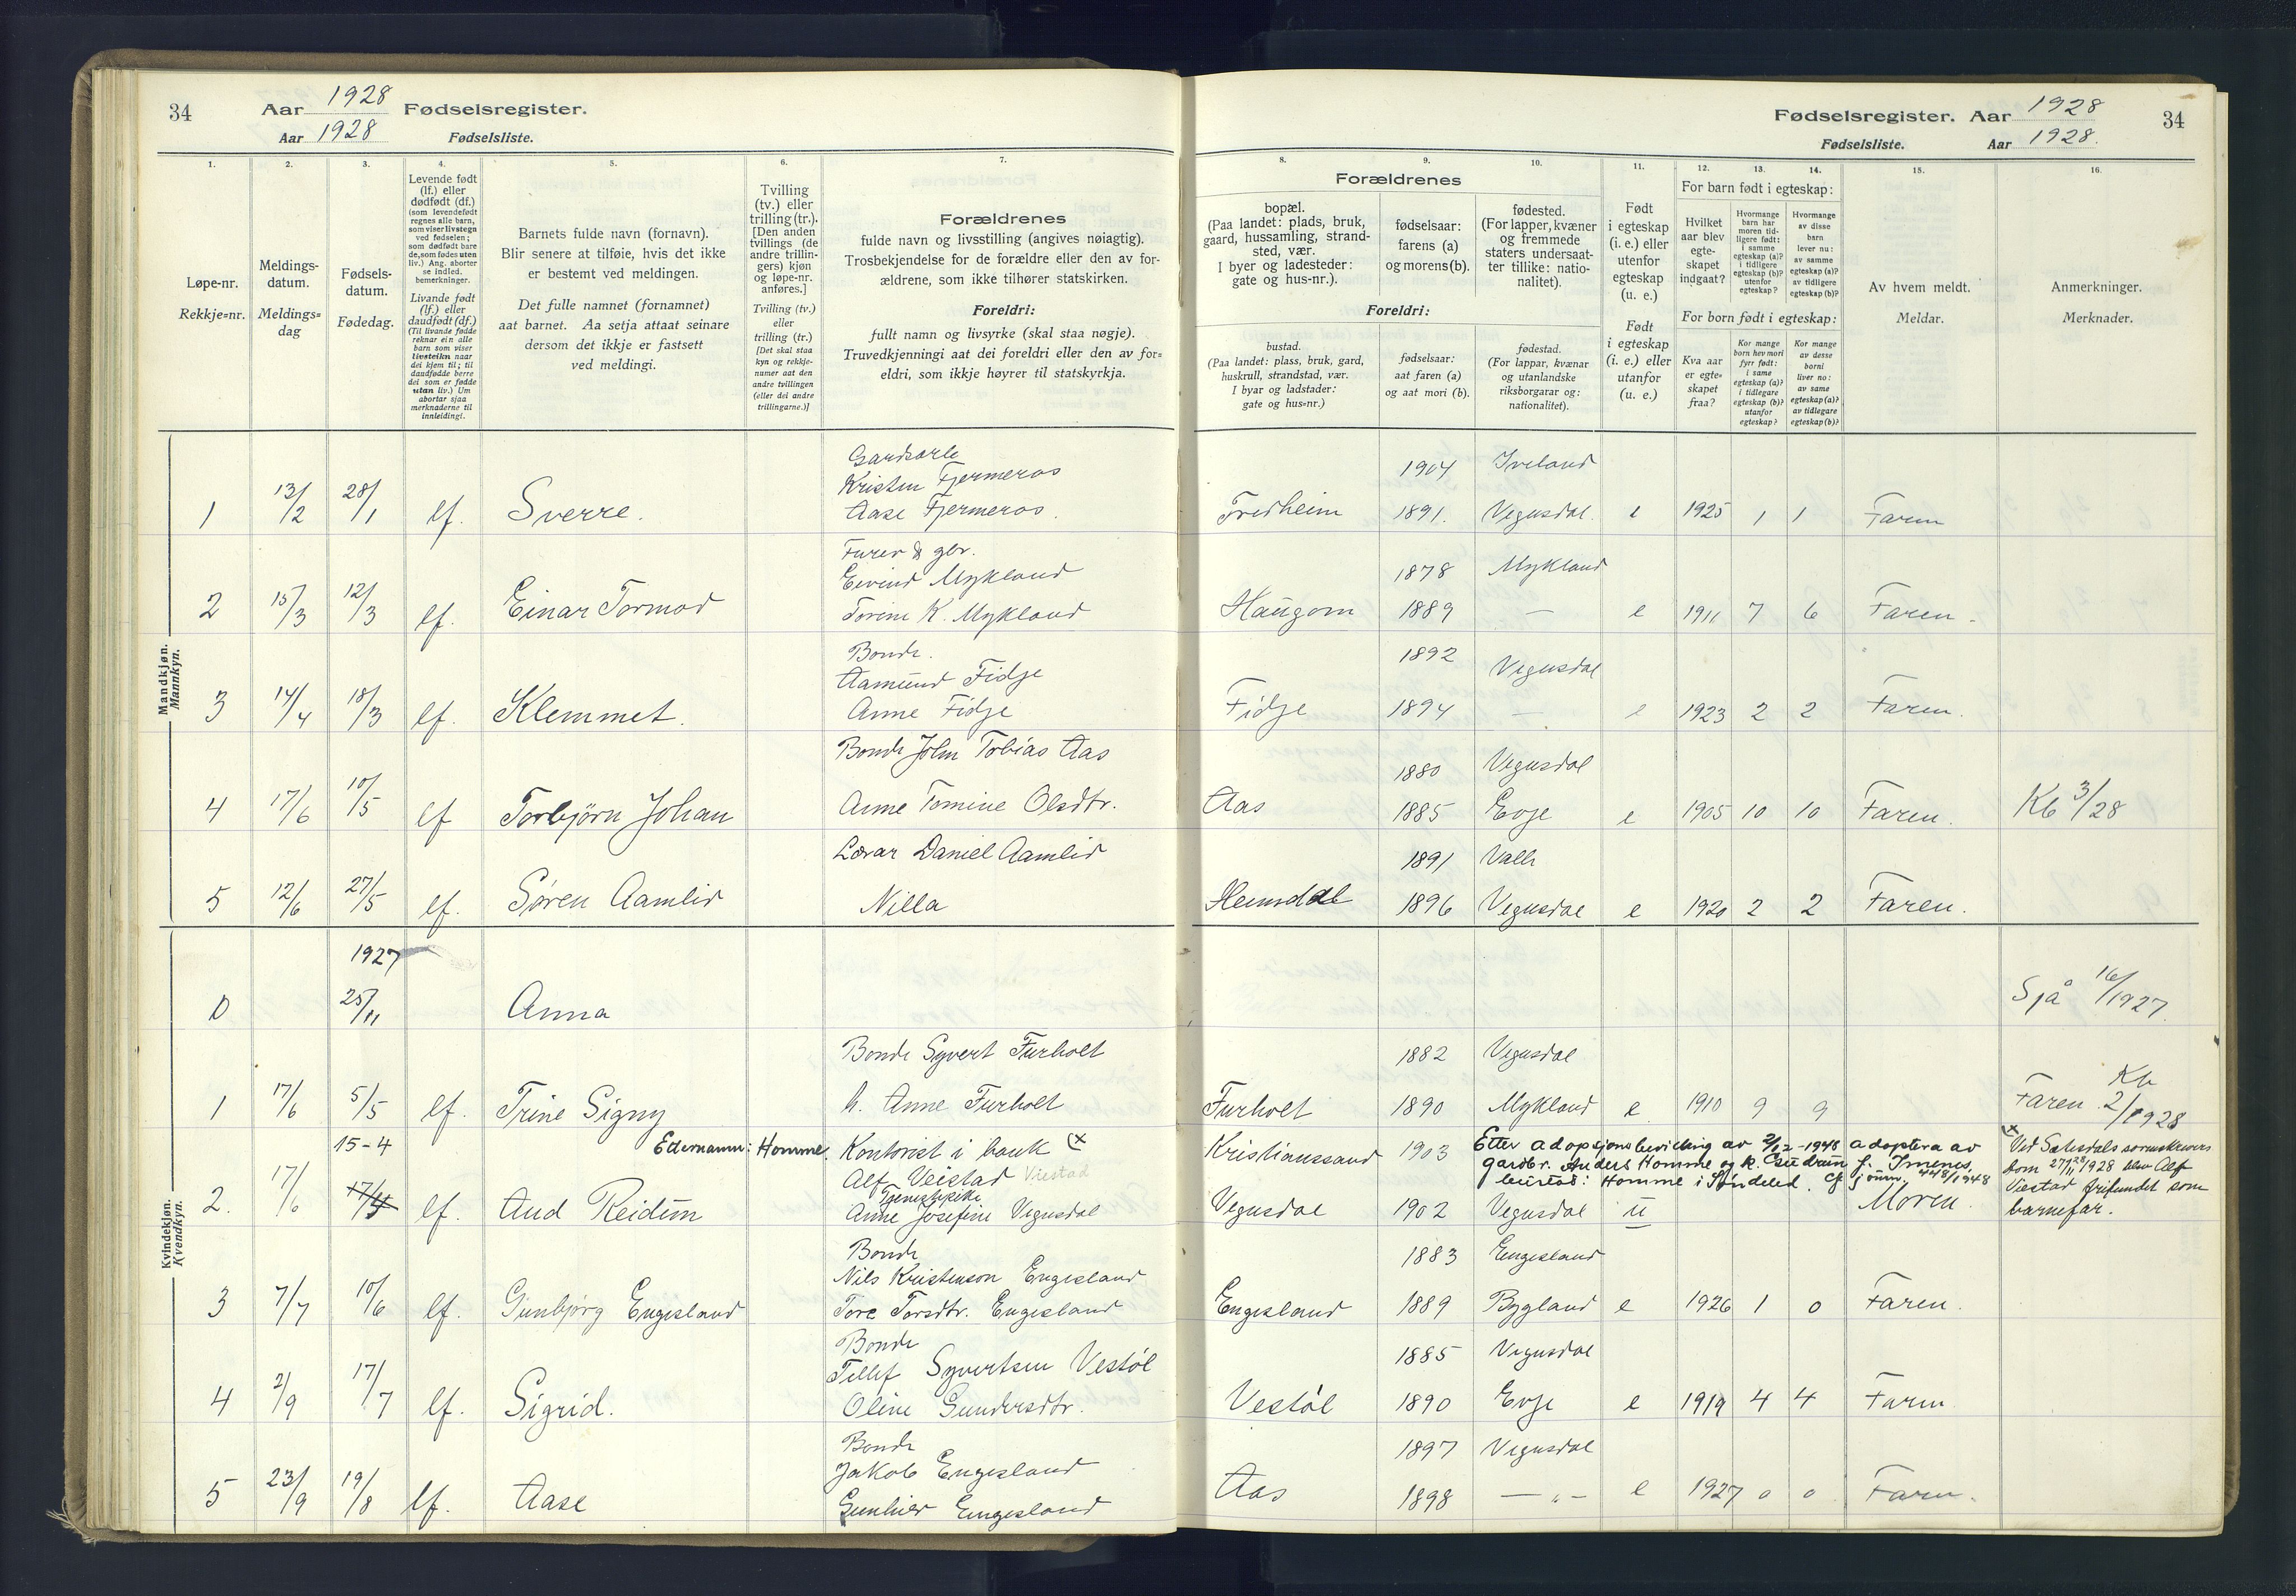 34
Aar 1928 Fødselsregister.
Aar 1928 Fødselsliste.
Fødselsregister. Aar 1928
34
Fødselsliste. Aar 1928.
1. 2. 3. 4. 5. 6. 7.
Løpe-nr.
Rekkje=nr.
Meldings-
datum.
Meldings=
dag
Fødsels-
datum.
Fødedag.
Levende født
(lf.) eller
dødfødt (df.)
(som levendefødt
regnes alle barn,
som viser livstegn
ved fødselen;
som dødfødt bare
de, som fødes uten
liv.) Ang. aborter
se indled.
bemerkninger.
Livande født
(lf.) eller
daudfødt (df.)
(Til livande fødde
reknar ein alle
barn som viser
livsteikn naar
dei kjem til; til
daudfødde berre
dei som er fødde
utan liv.) Um
abortar sjaa
merknaderne til
innleidingi.
Barnets fulde navn (fornavn).
Blir senere at tilføie, hvis det ikke
er bestemt ved meldingen.
Det fulle namnet (fornamnet)
aat barnet. Aa setja attaat seinare
dersom det ikkje er fastsett
ved meldingi.
Tvilling
(tv.) eller
trilling (tr.).
[Den anden
tvillings (de
andre trillin-
gers) kjøn
og løpe-nr.
anføres.]
Tvilling (tv.)
eller
trilling (tr.)
[Det skal staa
kyn og rekkje-
numer aat den
andre tvillingen
(eller dei andre
trillingarne.)]
Forældrenes
fulde navn og livsstilling (angives nøiagtig).
Trosbekjendelse for de forældre eller den av for-
ældrene, som ikke tilhører statskirken.
Foreldri:
fullt namn og livsyrke (skal staa nøgje).
Truvedkjenningi aat dei foreldri eller den av for=
eldri, som ikkje høyrer til statskyrkja.
8. 9. 10. 11. 12. 13. 14. 15. 16.
Forældrenes
bopæl.
(Paa landet: plads, bruk,
gaard, hussamling, strand-
sted, vær.
I byer og ladesteder:
gate og hus-nr.).
fødselsaar:
farens (a)
og morens (b).
fødested.
(For lapper, kvæner
og fremmede
staters undersaat-
ter tillike: natio-
nalitet).
Foreldri:
bustad.
(Paa landet: plass, bruk, gard,
huskrull, strandstad, vær.
I byar og ladstader:
gate og hus=nr.)
fødselsaar:
aat faren (a)
og aat mori (b).
fødestad.
(For lappar, kvænar
og utanlandske
riksborgarar og:
nationalitet).
Født
i egteskap
(i. e.) eller
utenfor
egteskap
(u. e.)
Født
i egteskap
(i. e.) eller
utanfor
(u. e.)
For barn født i egteskap:
Hvilket
aar blev
egte-
skapet
indgaat?
Hvormange
barn har
moren tid-
ligere født:
i samme
egteskap (a)?
i tidligere
egteskap (b)?
utenfor
egteskap?
Hvormange
av disse
barn
lever nu:
av samme
egteskap (a)?
av tidligere
egteskap (b)?
For born født i egteskap:
Kva aar
er egte-
skapet
fraa?
Kor mange
born hev mori
fyrr født:
i same
egteskap (a)?
i tidlegare
egteskap (b)?
utanfor
egteskap?
Kor mange
av desse
borni
liver no:
av same
egteskap (a)?
av tidlegare
egteskap (b)?
Av hvem meldt.
Meldar.
Anmerkninger.
Merknader.
Mandkjøn.
Mannkyn.
Gardsarb
Kristen Fjermeros 1904 Iveland
1 13/2 28/1 lf. Sverre. Aase Fjermeros. Fredheim 1891. Vegusdal. e 1925 1 1 Faren
Furer & gbr.
Eivind Mykland 1878 Mykland
2 15/3 12/3 lf. Einar Tormod Torine K. Mykland Haugom 1889 — e 1911 7 6 Faren.
Bonde.
Aamund Fidje 1892 Vegusdal
3 14/4 18/3 lf. Klemmet. Anne Fidje Fidje 1894 — e 1923 2 2 Faren.
Bonde John Tobias Aas 1880 Vegusdal
4 17/6 10/5 lf Torbjørn Johan Anne Tomine Olsdtr. Aas 1885 Evje e 1905 10 10 Faren. Kb 3/28
Lærar Daniel Aamlid 1891 Valle
5 12/6 27/5 lf. Søren Aamlid Nilla Heimdal 1896 Vegusdal e 1920 2 2 Faren.
Kvindekjøn.
Kvendkyn.
1927
0 25/11 Anna Sjå 16/1927.
Bonde Syvert Furholt 1882 Vegusdal
1 17/6 5/5 lf. Trine Signy h. Anne Furholt Furholt 1890 Mykland e 1910 9 9 Faren Kb 2/1928
15-4 Etternamn: Homme. Kontorist i bank (x Kristianssand 1903
Alf Veistad Viestad
Tjenestpike
2. 17/6 17/4 lf. Aud Reidun Anne Josefine Vegusdal Vegusdal 1902 Vegusdal u Moren.
Etter adopsjonsbevilling av 2/12-1948 adoptera av
gardbr. Anders Homme og k. Gudrun f. Imenes,
bustad: Homme i Søndeled. Cf journ. 448/1948
x) Ved Setesdals sorenskrivers
dom 27/11 1928 blev Alf
Viestad frifundet som
barnefar.
Bonde
Nils Kristenson Engesland 1883 Engesland
3 7/7 10/6 lf. Gunbjørg Engesland Tore Torsdtr. Engesland Engesland 1889 Bygland e 1926 1 0 Faren.
Bonde
Tellef Syvertsen Vestøl 1885 Vegusdal
4 2/9 17/7 lf. Sigrid. Oline Gundersdtr. Vestøl 1890 Evje e 1919 4 4 Faren
Bonde
Jakob Engesland 1897 Vegusdal
5 23/9 19/8 lf. Aase Gunhild Engesland Aas 1898 —„— e 1927 0 0 Faren.